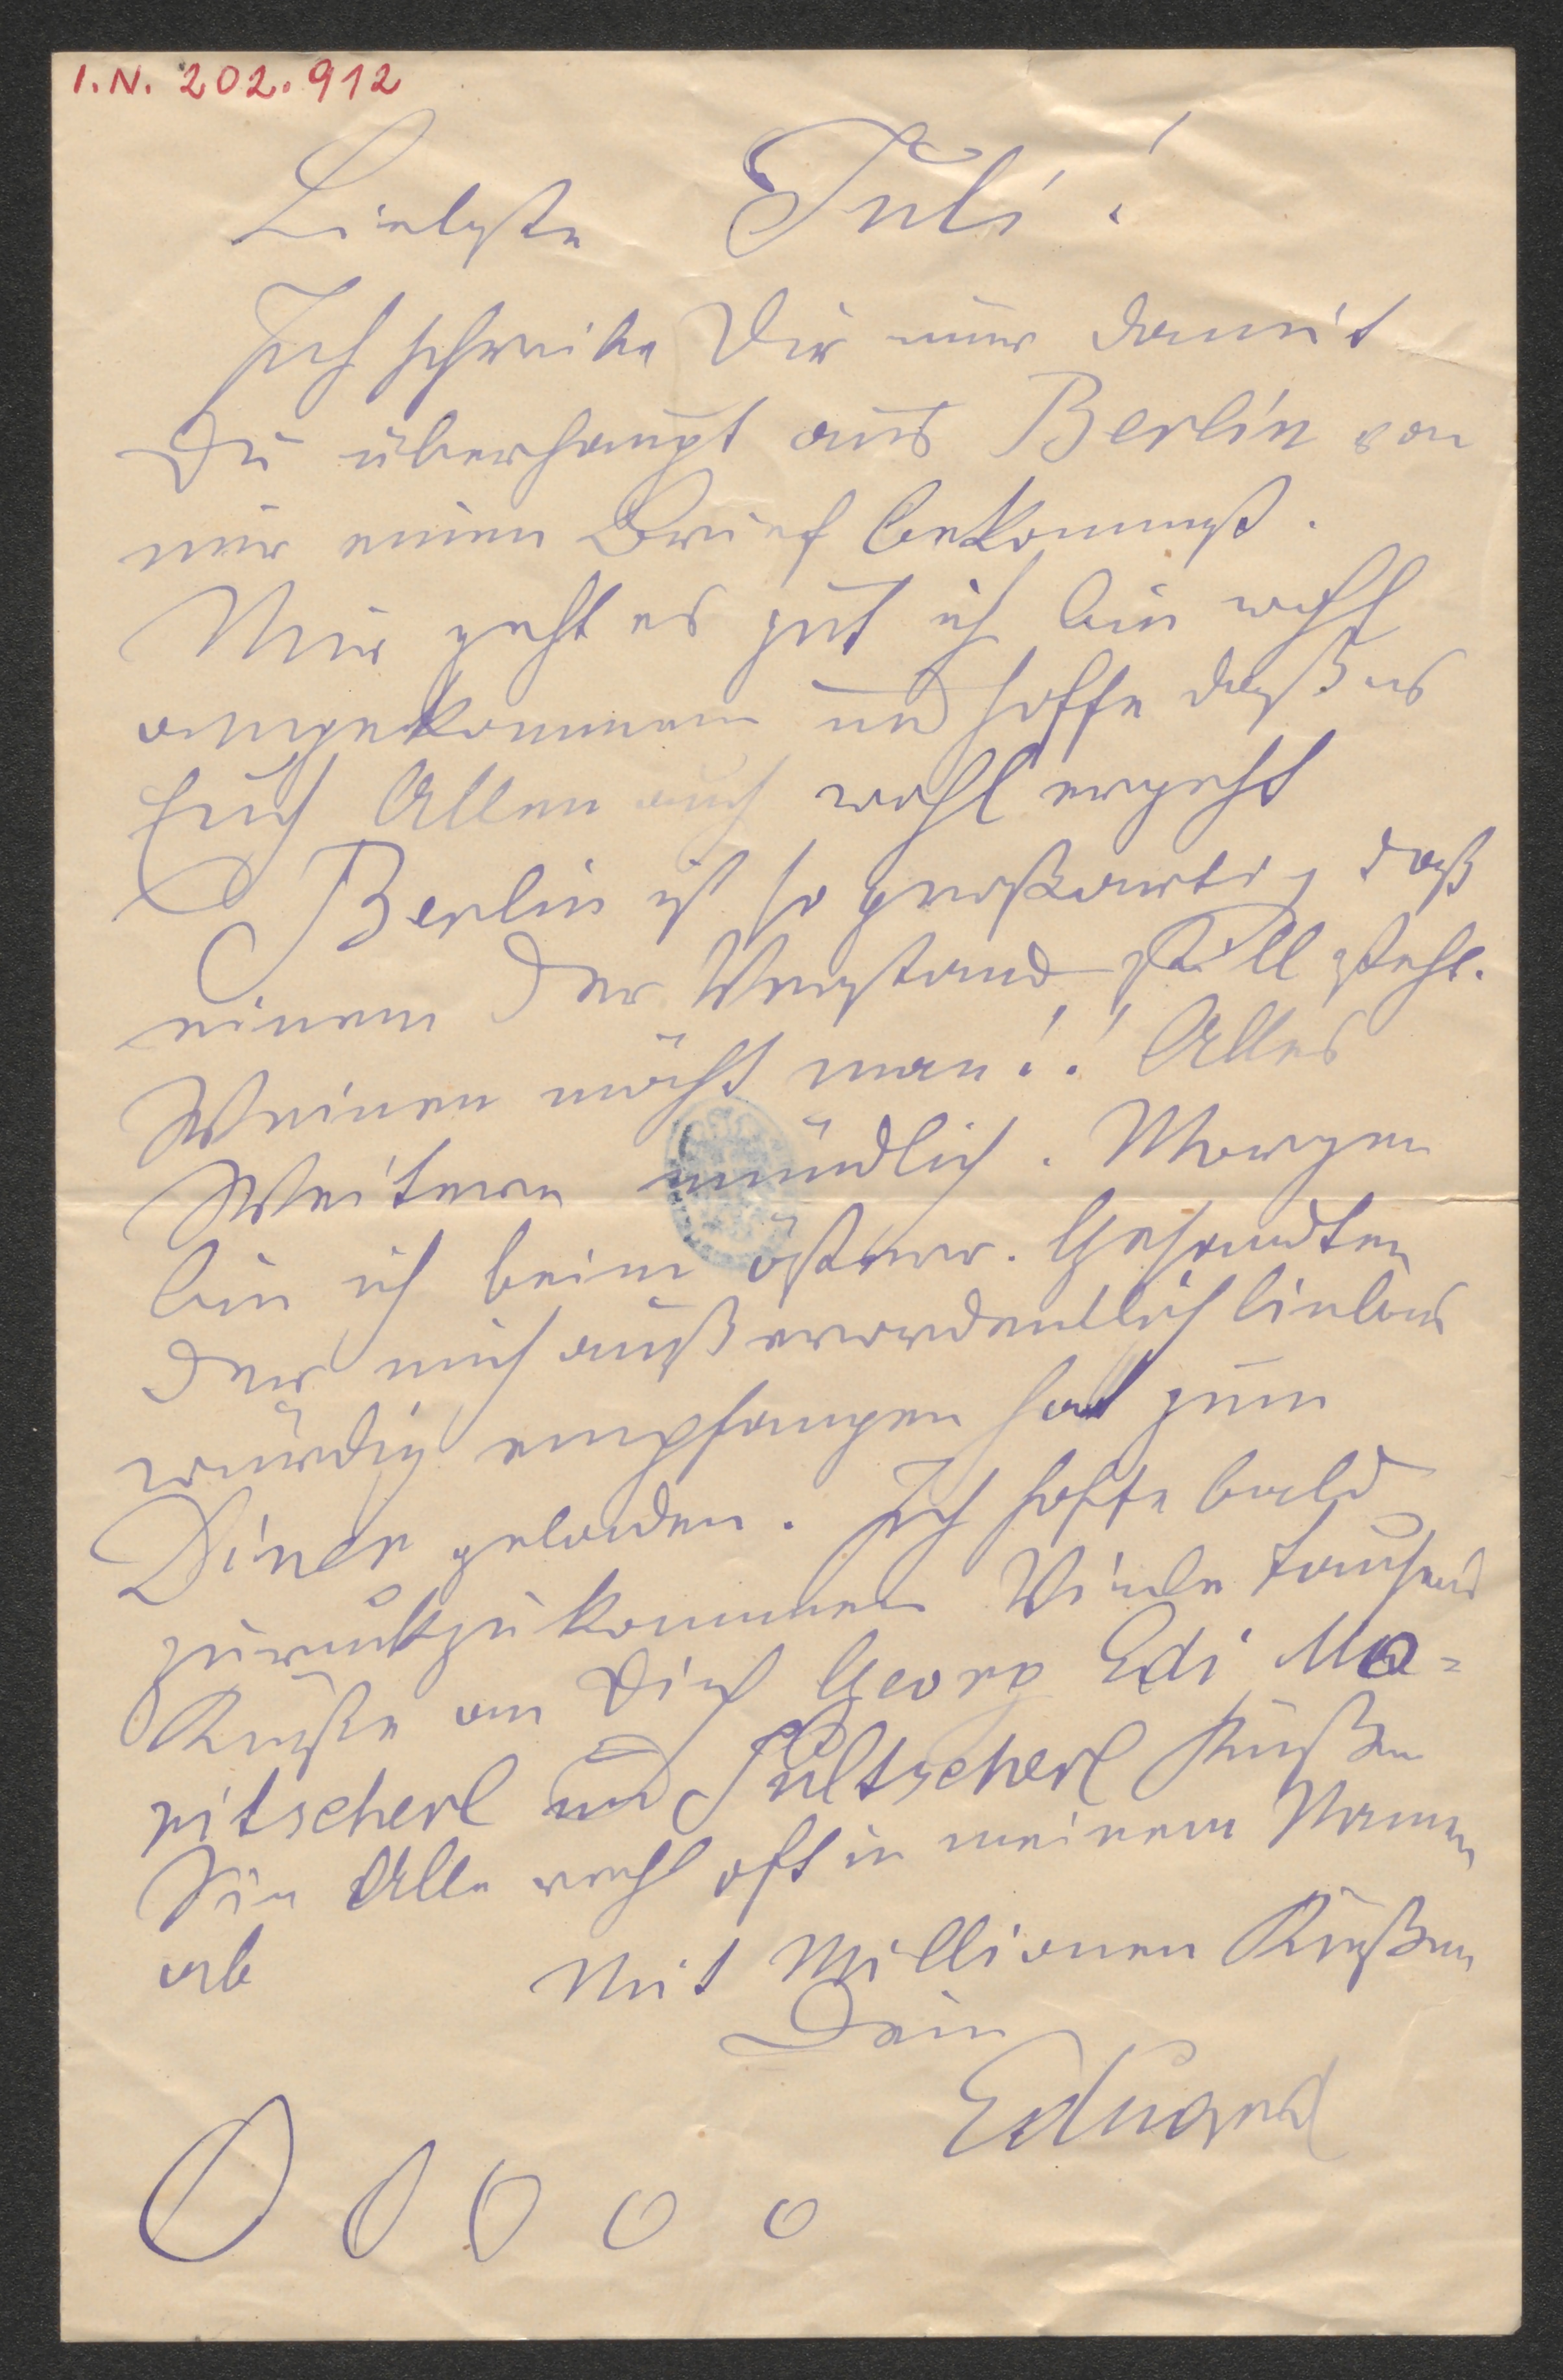 I.N. 202.912
Liebste Juli!
Ich schreibe Dir nur damit
Du überhaupt aus Berlin von
mir einen Brief bekommst.
Mir geht es gut ich bin wohl
angekommen und hoffe daß es
Euch Allen auch wohl ergeht
Berlin ist so großartig, daß
einem der Verstand still steht.
Weinen möcht man!! Alles
Weitere mündlich. Morgen
bin ich beim österr. Gesandten
der mich außerordentlich liebens
würdig empfangen hat zum
Diner geladen. Ich hoffe bald
zurückzukommen Viele tausend
Küße an Dich Georg Edi Ma-
ritscherl und Jultscherl Küßen
Sie Alle recht oft in meinem Namen
ab Mit Millionen Küßen
Dein
Eduard
O O O O O